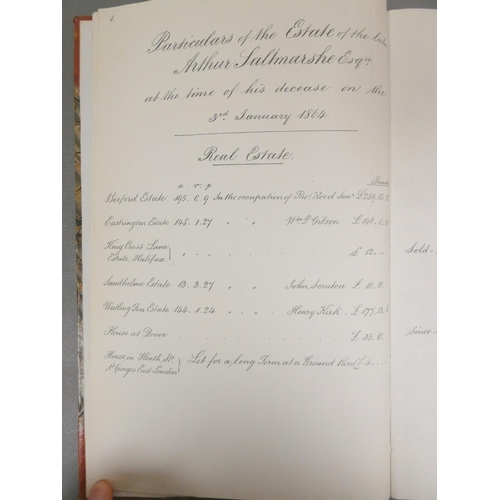 1.
Particulars of the Estate of the late
Arthur Saltmarshe Esqre
at the time of his decease on the
3rd January 1864.
Real Estate.
a. r. p.
Beeford Estate 195. 0. 9 In the occupation of Thos. Hood Senr.
Eastrington Estate 148. 1. 27 " " Wm. Gibson £
King Cross Lane
Estate, Halifax } £ 12. - -
Sandholme Estate 13. 3. 27 " John Scruton £
Walling Fen Estate 144. 1. 24 " " Henry Kirk £ 177. 13.
House at Dover £ 35. 0.
House in Heath St.
St. Georges East London } Let for a long Term at a Ground Rent £ 4. - -
Sold
Since